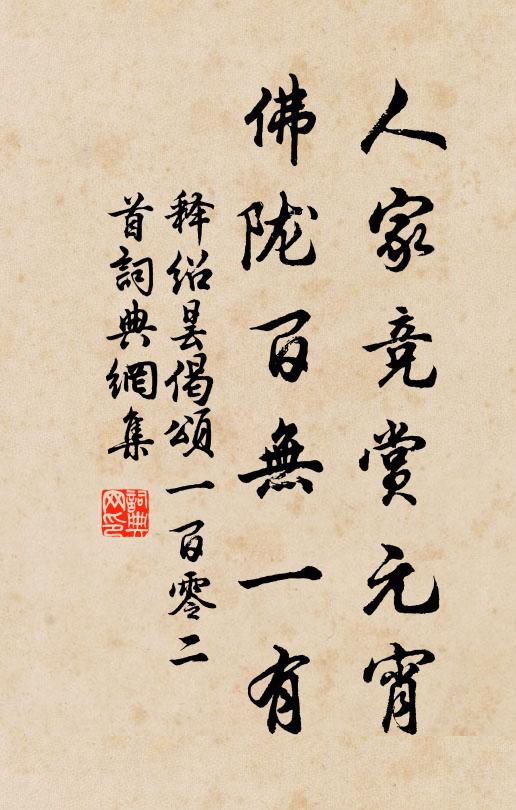 人家竞赏元宵
佛陇百無一有
释绍昙偈頌一百零二
首詞典網集
詞典网印